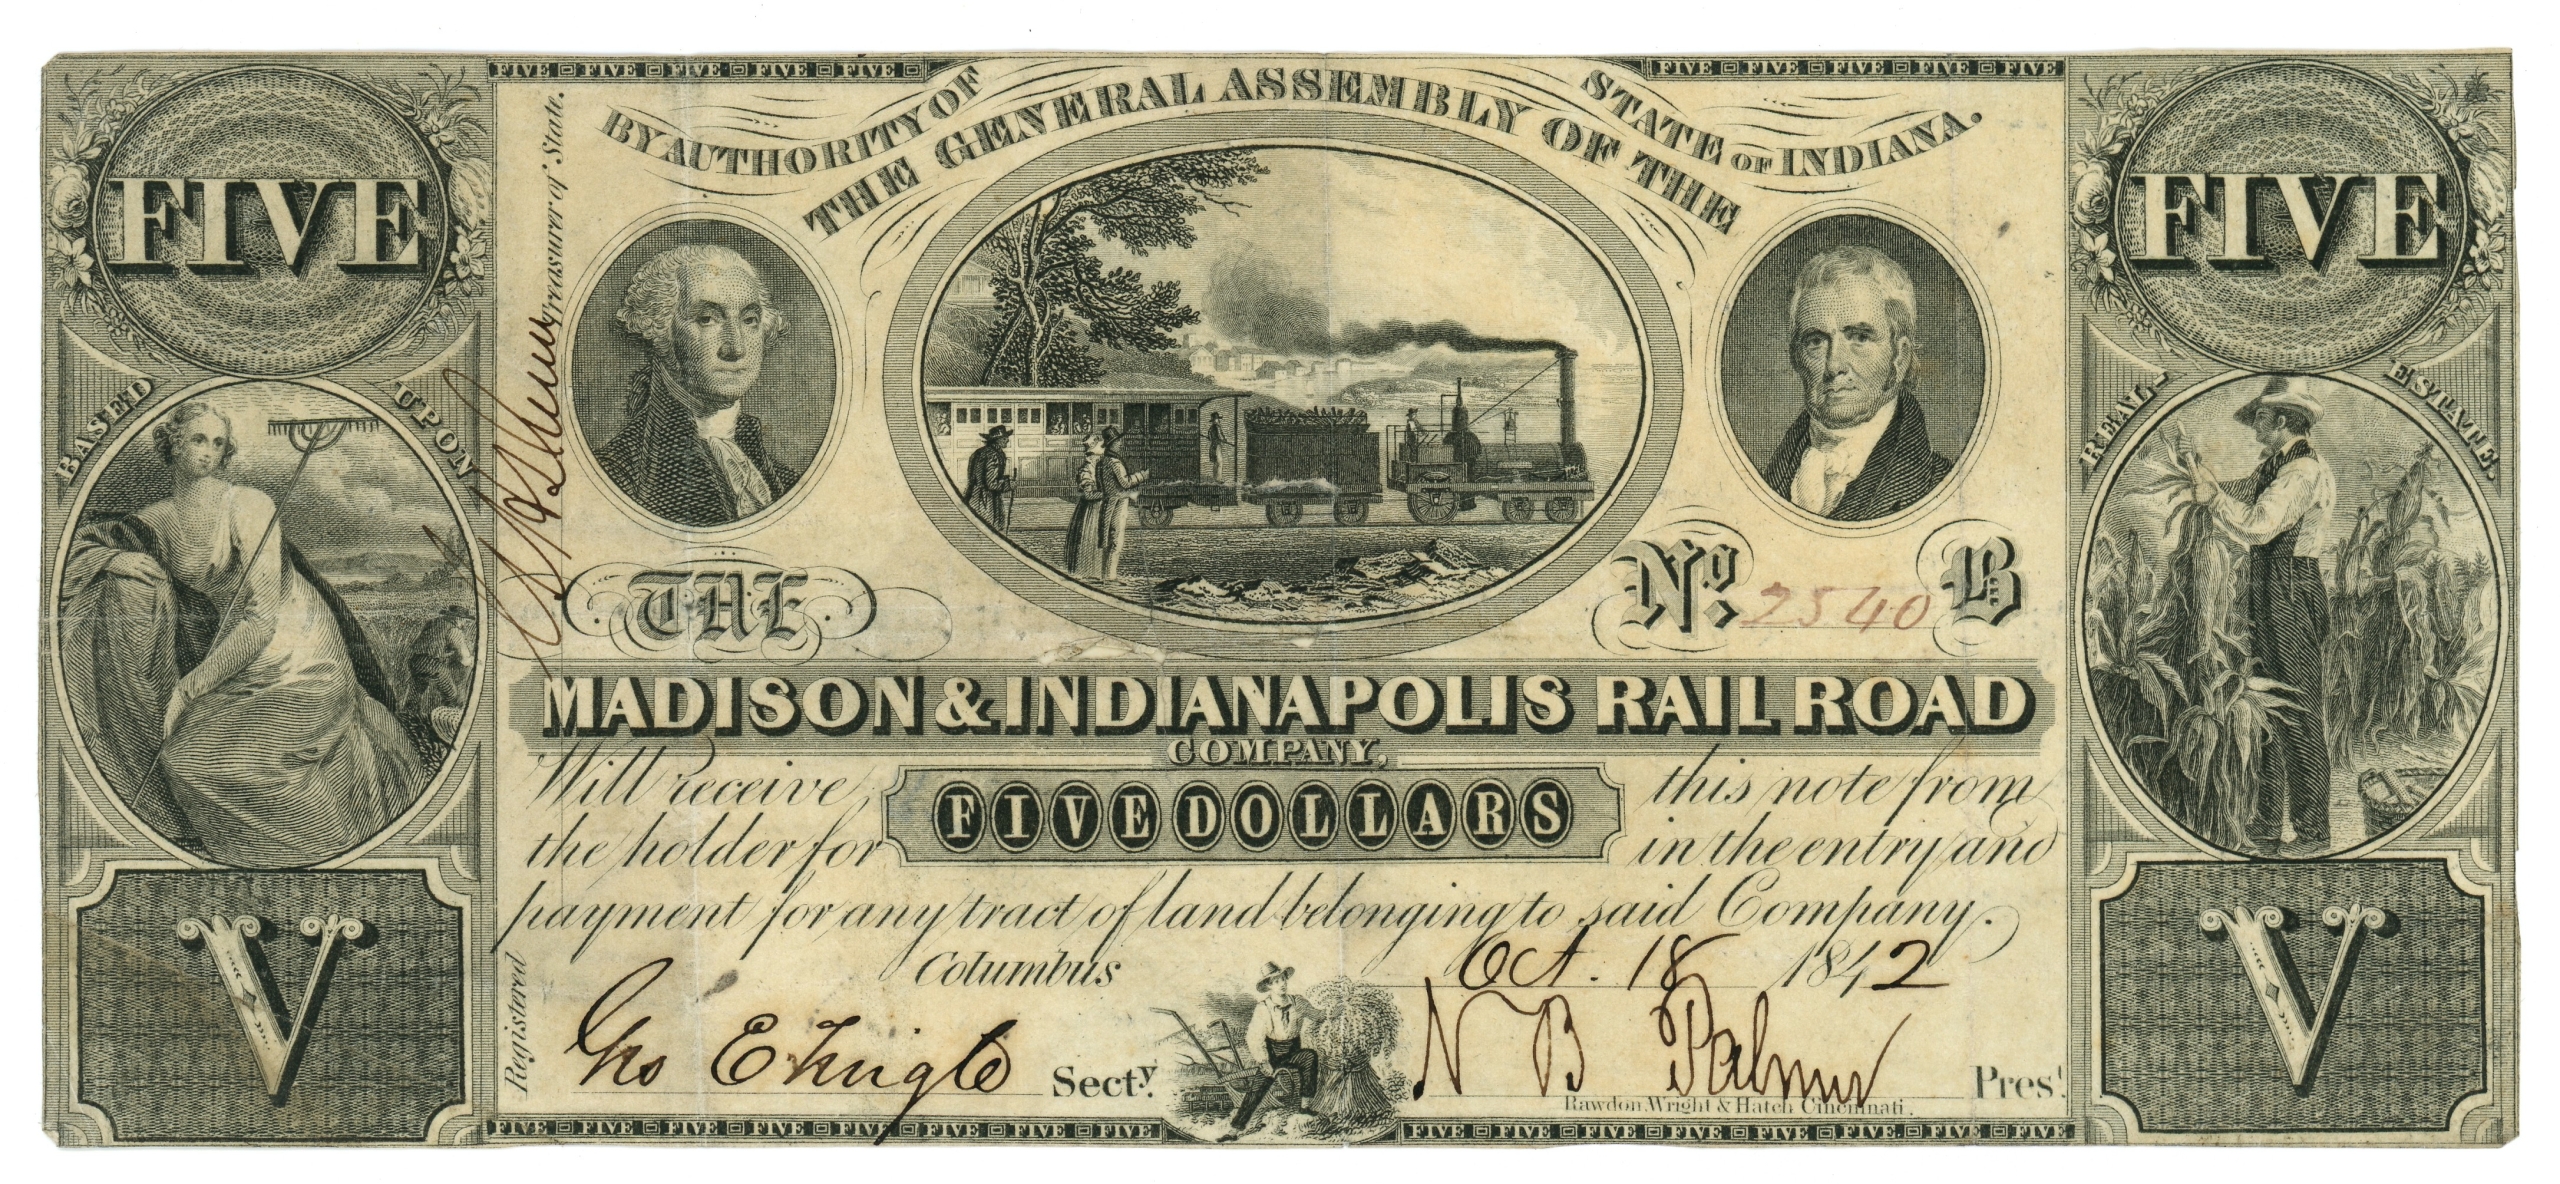 FIVE FIVE FIVE FIVE FIVE
FIVE FIVE FIVE FIVE FIVE
BY AUTHORITY OF
THE GENERAL ASSEMBLY OF THE
STATE OF INDIANA.
FIVE
FIVE
BASED UPON
REAL ESTATE.
Treasurer of State.
THE
No. 2540 B
MADISON & INDIANAPOLIS RAIL ROAD
COMPANY,
Will receive this note from
the holder for FIVE DOLLARS in the entry and
payment for any tract of land belonging to said Company.
Columbus Oct. 18 1842
Registered
Geo E Secty.
N B Palmer Prest.
Rawdon, Wright & Hatch Cincinnati.
V
V
FIVE FIVE FIVE FIVE FIVE FIVE FIVE FIVE
FIVE FIVE FIVE FIVE FIVE FIVE FIVE FIVE